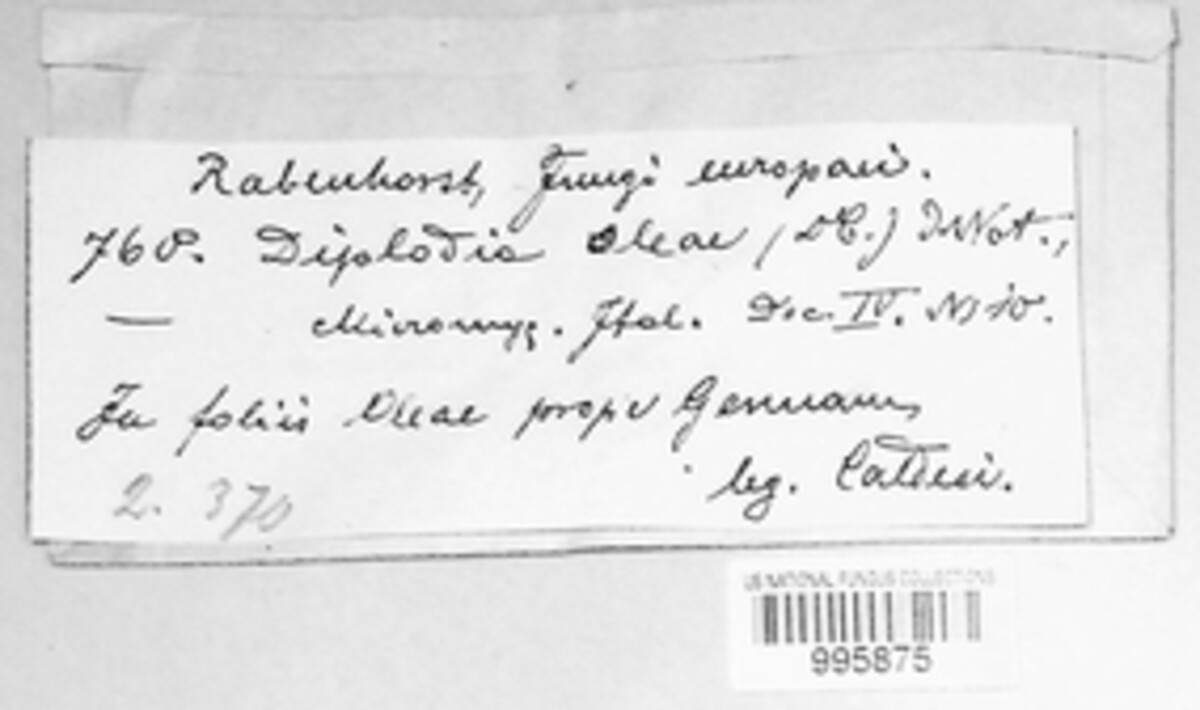 Rabenhorst, Fungi europaei.
760. Diplodia Oleae (DC.) DNot.,
— Micromyc. Ital. Dec. IV. N. 10.
In foliis Oleae prope Genuam,
leg. Caldesi.
2. 370
US NATIONAL FUNGUS COLLECTIONS
995875